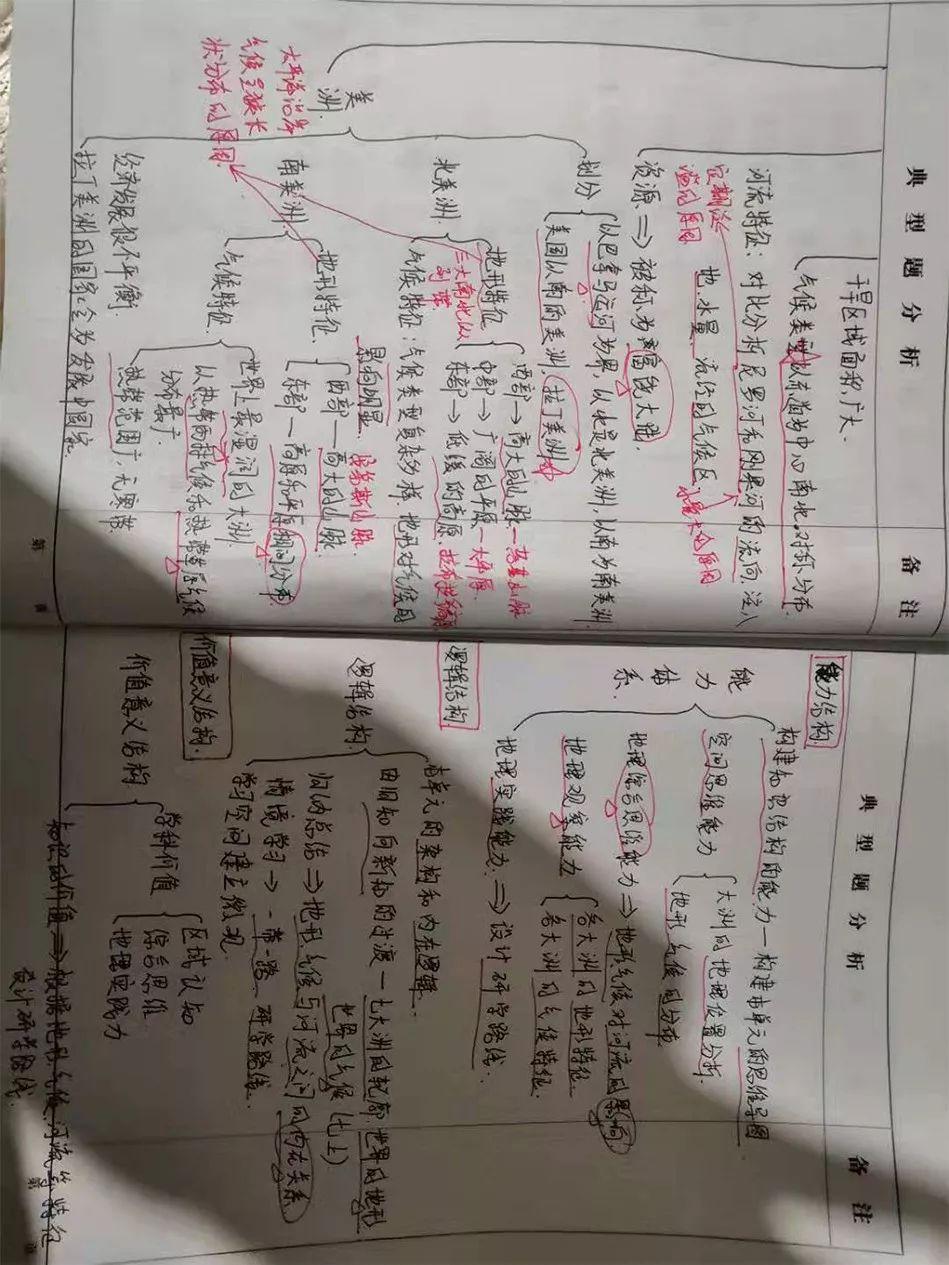 典型题分析
备注
干旱区域面积广大.
气候类型以赤道为中心南北对称分布
河流特征：对比分析尼罗河和刚果河的流向、注入
地、水量、流经的气候区
定期泛
滥的原因
水量大的原因
资源⇒被称为富饶大陆.
美
洲.
划分
以巴拿马运河为界,以北是北美洲,以南为南美洲.
美国以南的美洲:拉丁美洲
北美洲.
地形特征.
三大南北纵
列带
西部→高大的山脉—落基山脉
中部→广阔的平原—大平原
东部→低缓的高原.拉布拉多高原
气候特征:气候类型复杂多样.地形对气候的
影响明显.
南美洲.
地形特征.
西部—高大的山脉
安第斯山脉
东部—高原和平原相间分布.
气候特征.
世界上最湿润的大洲.
以热带雨林气候和热带草原气候
分布最广.
热带范围广,无寒带
太平洋沿岸
气候呈狭长
状分布的原因
经济发展很不平衡
拉丁美洲的国家全为发展中国家.
第 页
典型题分析
备注
能力结构.
能
力
体
系.
构建知识结构的能力—构建本单元的思维导图
空间思维能力
大洲的地理位置分析.
地形气候的分布
地理综合思维能力⇒地形气候对河流的影响
地理观察能力
各大洲的地形特征
各大洲的气候特征.
地理实践能力.⇒设计研学路线.
逻辑结构.
逻辑结构.
本单元的架构和内在逻辑.
由旧知向新知的过渡—七大洲的轮廓.世界的地形
世界的气候(七上)
归纳总结⇒地形.气候与河流之间的内在关系
情境学习→一带一路 研学路线.
学习空间建立微观.
价值意义结构.
价值意义结构
学科价值
区域认知
综合思维
地理实践力
知识的价值⇒根据地形气候、河流等特征
设计研学路线.
第 页